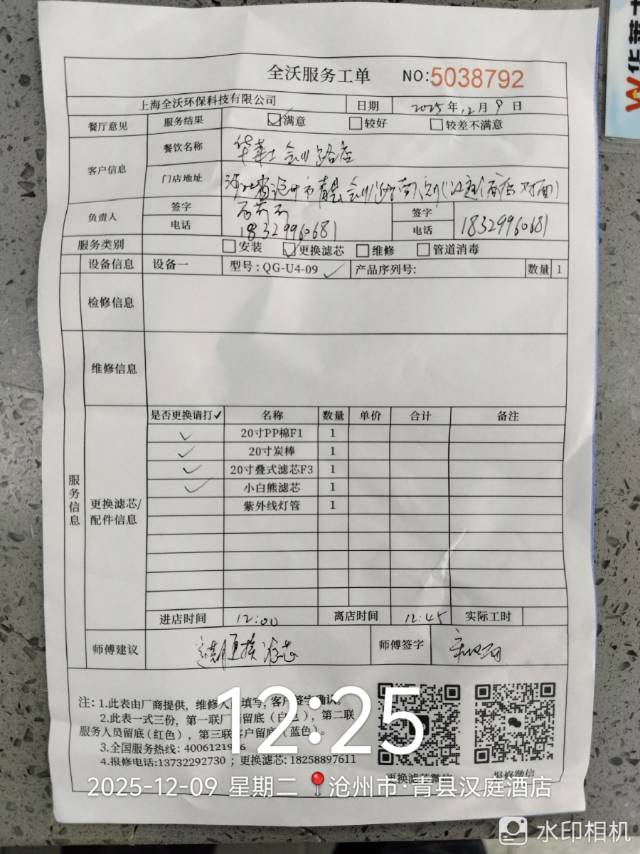 全沃服务工单 NO:5038792
上海全沃环保科技有限公司 日期 2025年12月9日
餐厅意见 服务结果 ☑满意 □较好 □较差不满意
客户信息 餐饮名称 华莱士金川路店
门店地址
负责人 签字 签字
电话 18329960681 电话 18329960681
服务类别 □安装 ☑更换滤芯 □维修 □管道消毒
设备信息 设备一 型号:QG-U4-09 ✓ 产品序列号: 数量 1
检修信息
维修信息
服务信息
更换滤芯/配件信息
是否更换请打✓ 名称 数量 单价 合计 备注
✓ 20寸PP棉F1 1
✓ 20寸炭棒 1
✓ 20寸叠式滤芯F3 1
✓ 小白熊滤芯 1
紫外线灯管 1
进店时间 12:00 离店时间 12:45 实际工时
师傅建议 定期更换滤芯 师傅签字
注:1.此表由厂商提供,维修人 填写,客户签字确认。
2.此表一式三份,第一联厂商留底(白色),第二联
服务人员留底(红色),第三联客户留底(蓝色)。
3.全国服务热线:4006121956
4.报修电话:13732292730 ;更换滤芯:18258897611
更换滤芯微信 报修微信
12:25
2025-12-09 星期二 沧州市·青县汉庭酒店
水印相机